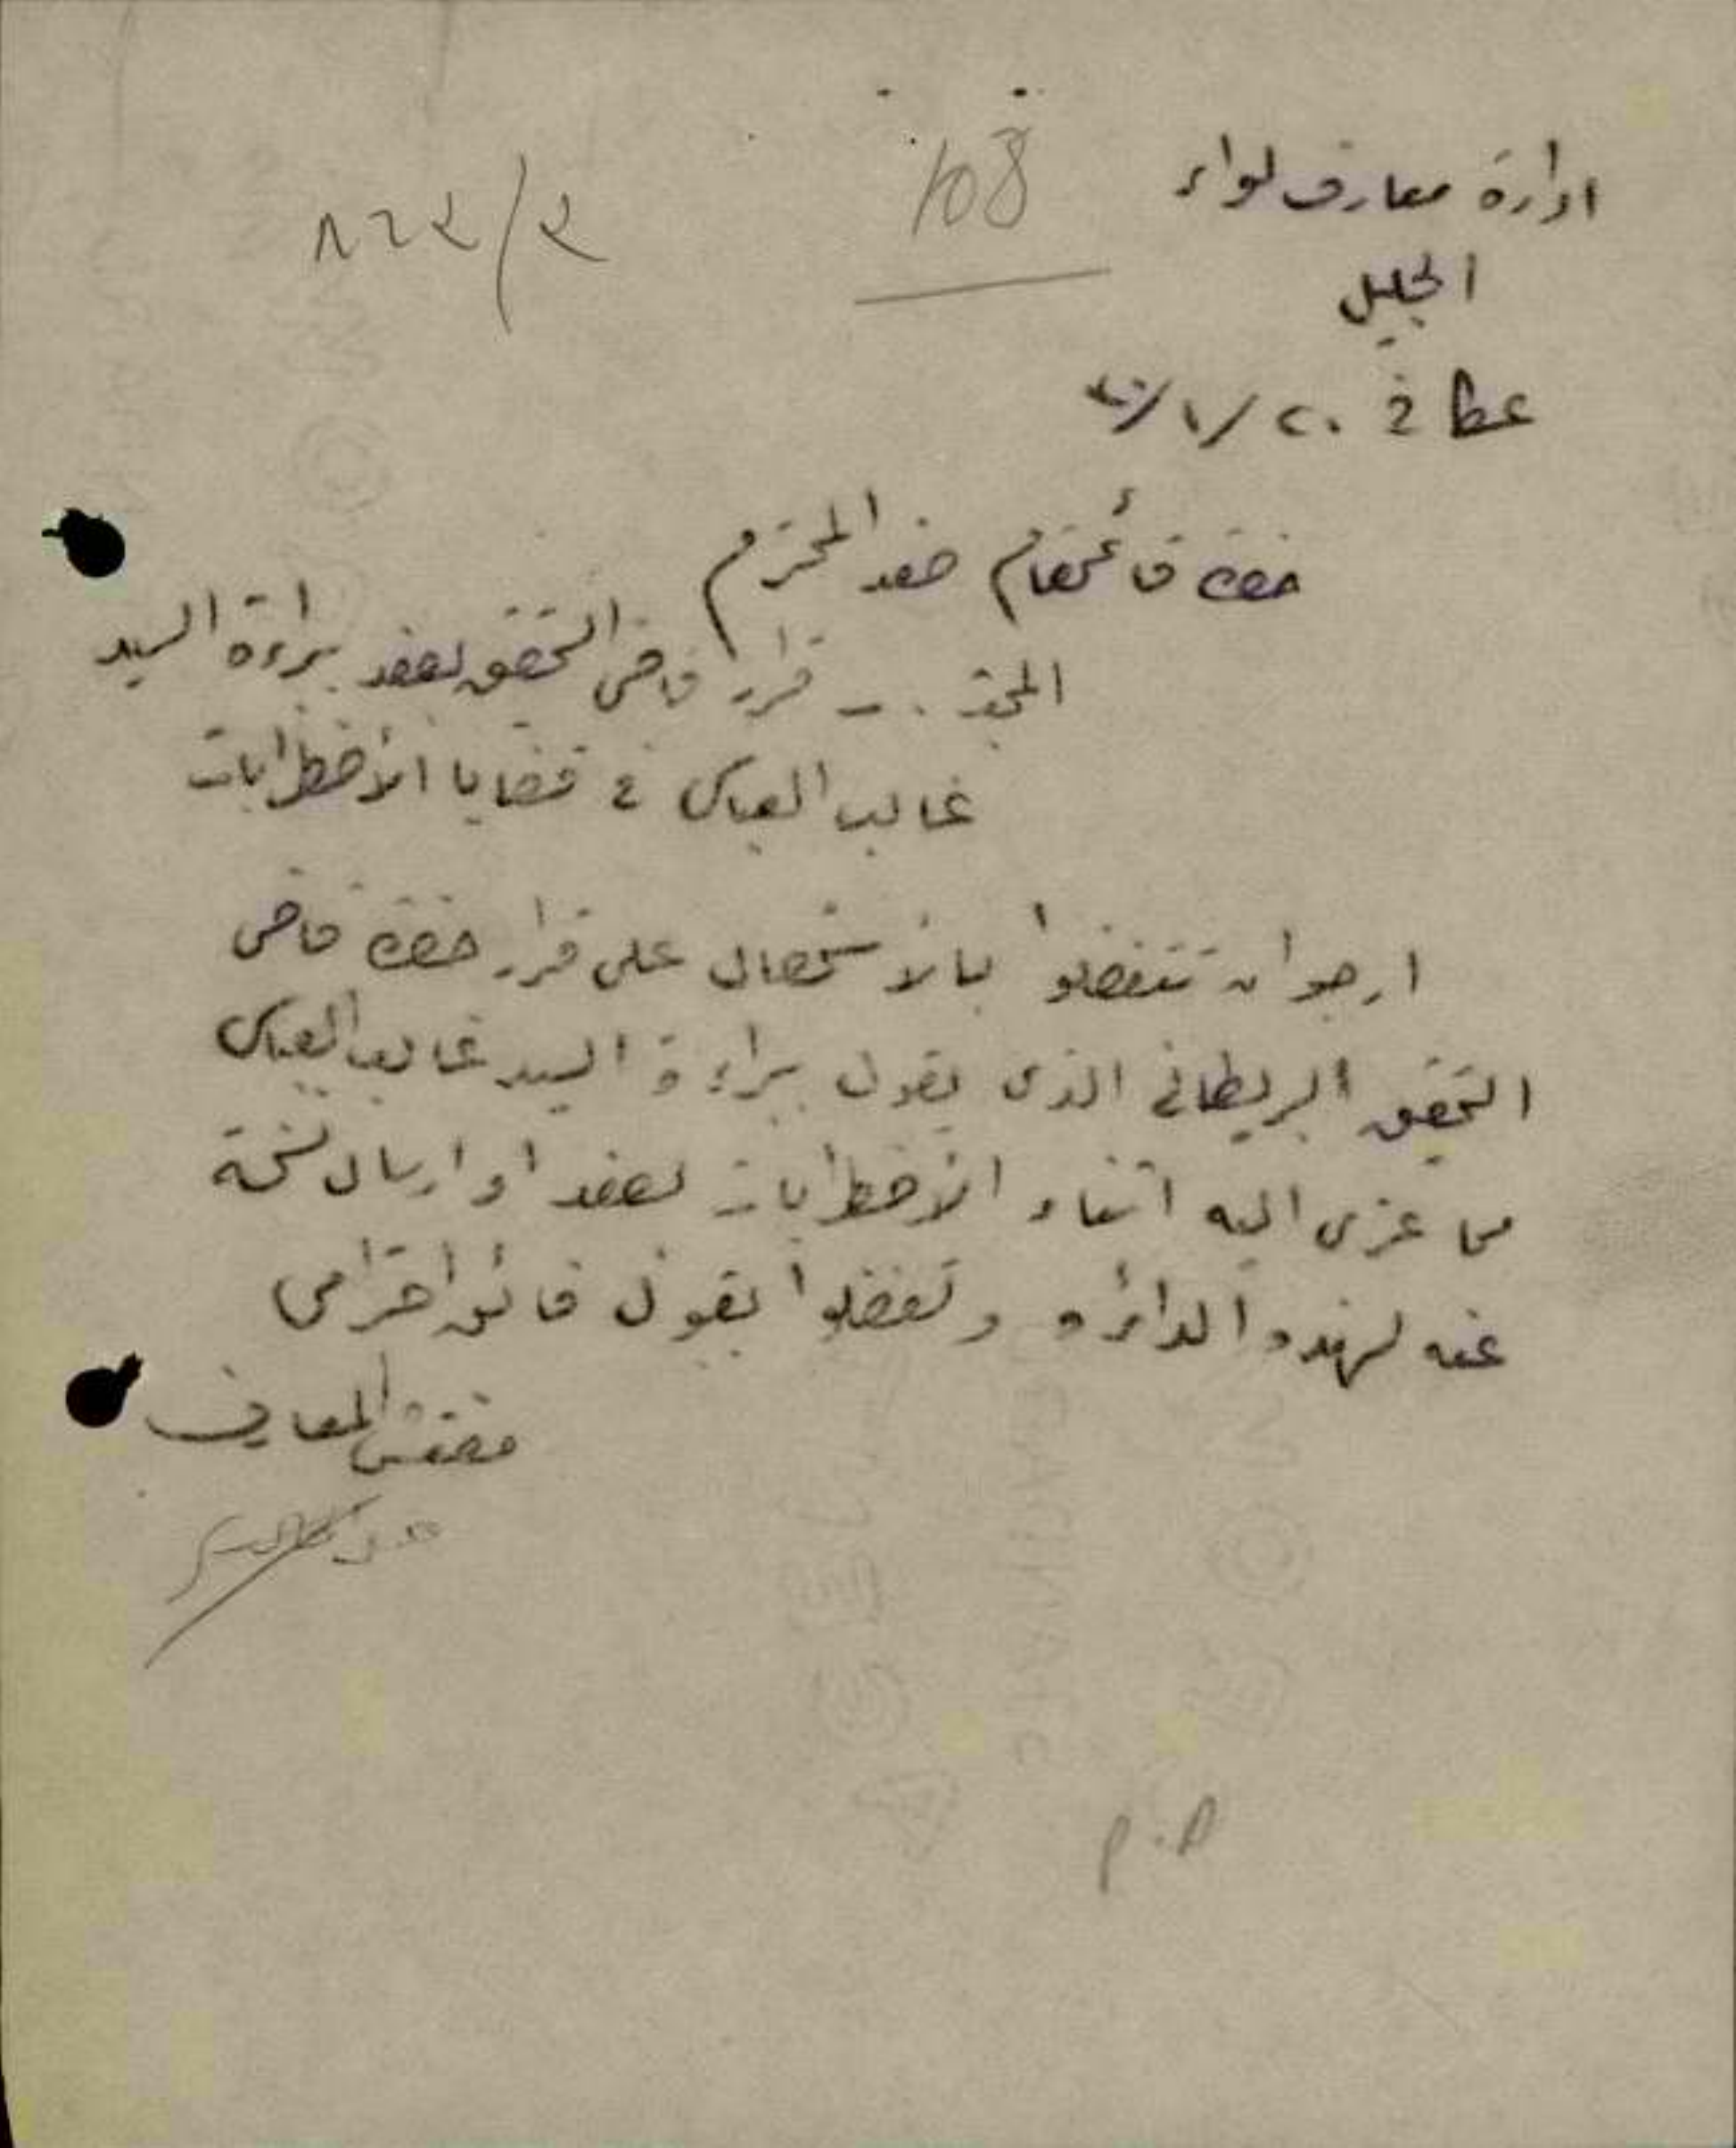 ادارة معارف لواء
الجليل
108
٨٦٣/٣
عكا في ٢٠/١/٣٠
حضرة قائمقام صفد المحترم
المبحث .- قرار قاضي التحقيق بصفد براءة السيد
غالب العباسي في قضايا الأضطرابات
ارجو ان تتفضلوا بالاستحصال على قرار حضرة قاضي
التحقيق البريطاني الذي يقول ببراءة السيد غالب العباسي
مما عزي اليه اثناء الأضطرابات بصفد او ارسال نسخة
عنه لهذه الدائره وتفضلوا بقبول فائق احترامي
مفتش المعارف
P.A